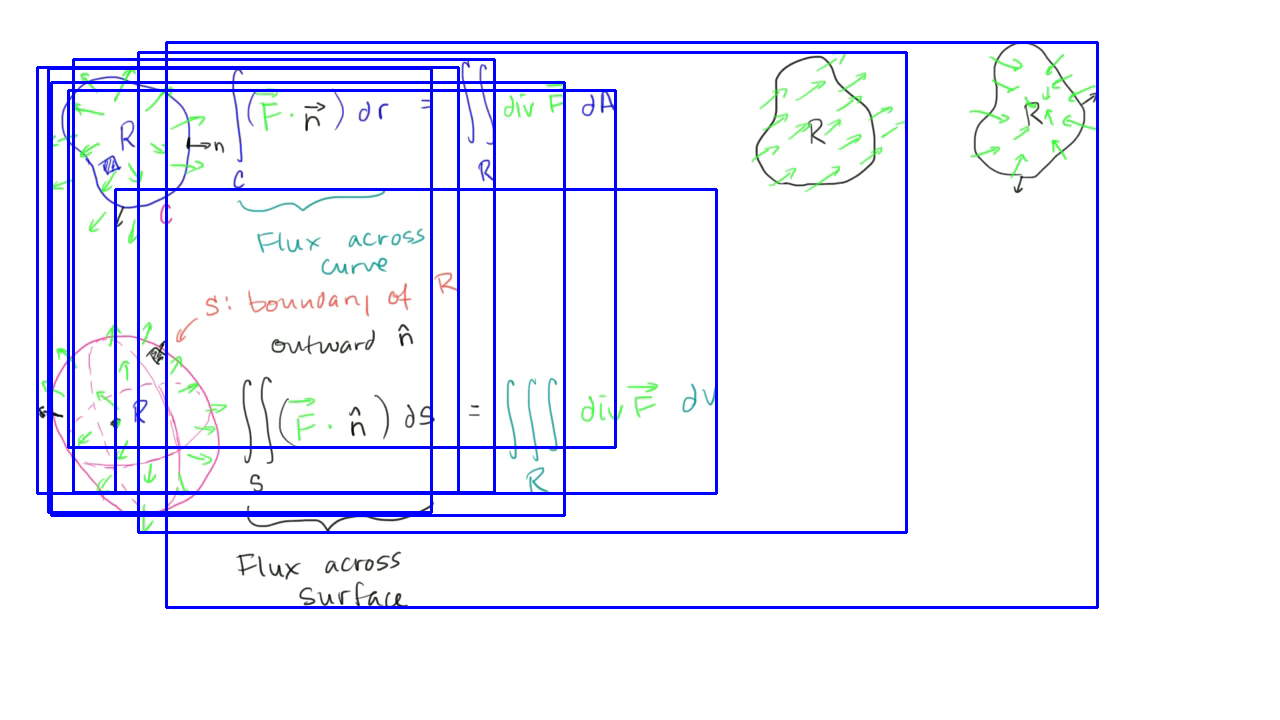 ∫_C (F⃗ · n⃗) dr = ∬_R div F⃗ dA
R
n
C
R
R
Flux across
curve
S: boundary of R
outward n̂
R
∬_S (F⃗ · n̂) ds = ∭_R div F⃗ dv
Flux across
surface